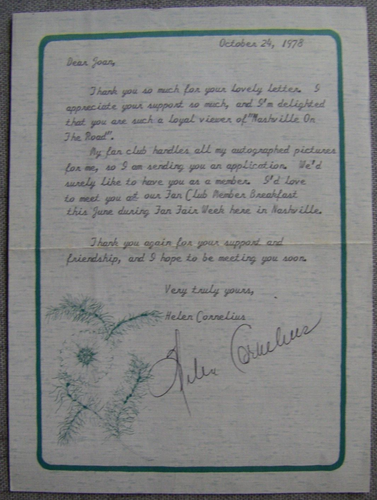 October 24, 1978
Dear Joan,
Thank you so much for your lovely letter. I
appreciate your support so much, and I'm delighted
that you are such a loyal viewer of "Nashville On
The Road".
My fan club handles all my autographed pictures
for me, so I am sending you an application. We'd
surely like to have you as a member. I'd love
to meet you at our Fan Club Member Breakfast
this June during Fan Fair Week here in Nashville.
Thank you again for your support and
friendship, and I hope to be meeting you soon.
Very truly yours,
Helen Cornelius
Helen Cornelius